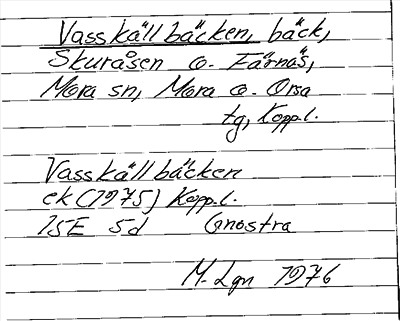 Vasskällbäcken, bäck,
Skuråsen o. Färnäs,
Mora sn, Mora o. Orsa
tg, Kopp.l.
Vasskällbäcken
ek (1975) Kopp.l.
15E 5d Gnostra
M. Lgn 1976